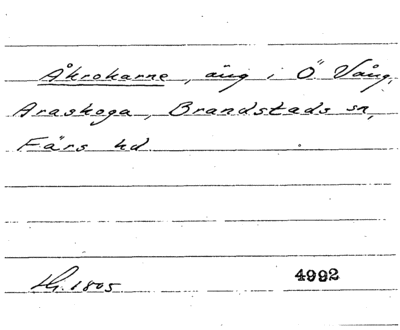 Åkrokarne, äng i Ö. Vång,
Araskoga, Brandstads sn,
Färs hd
1805 4992